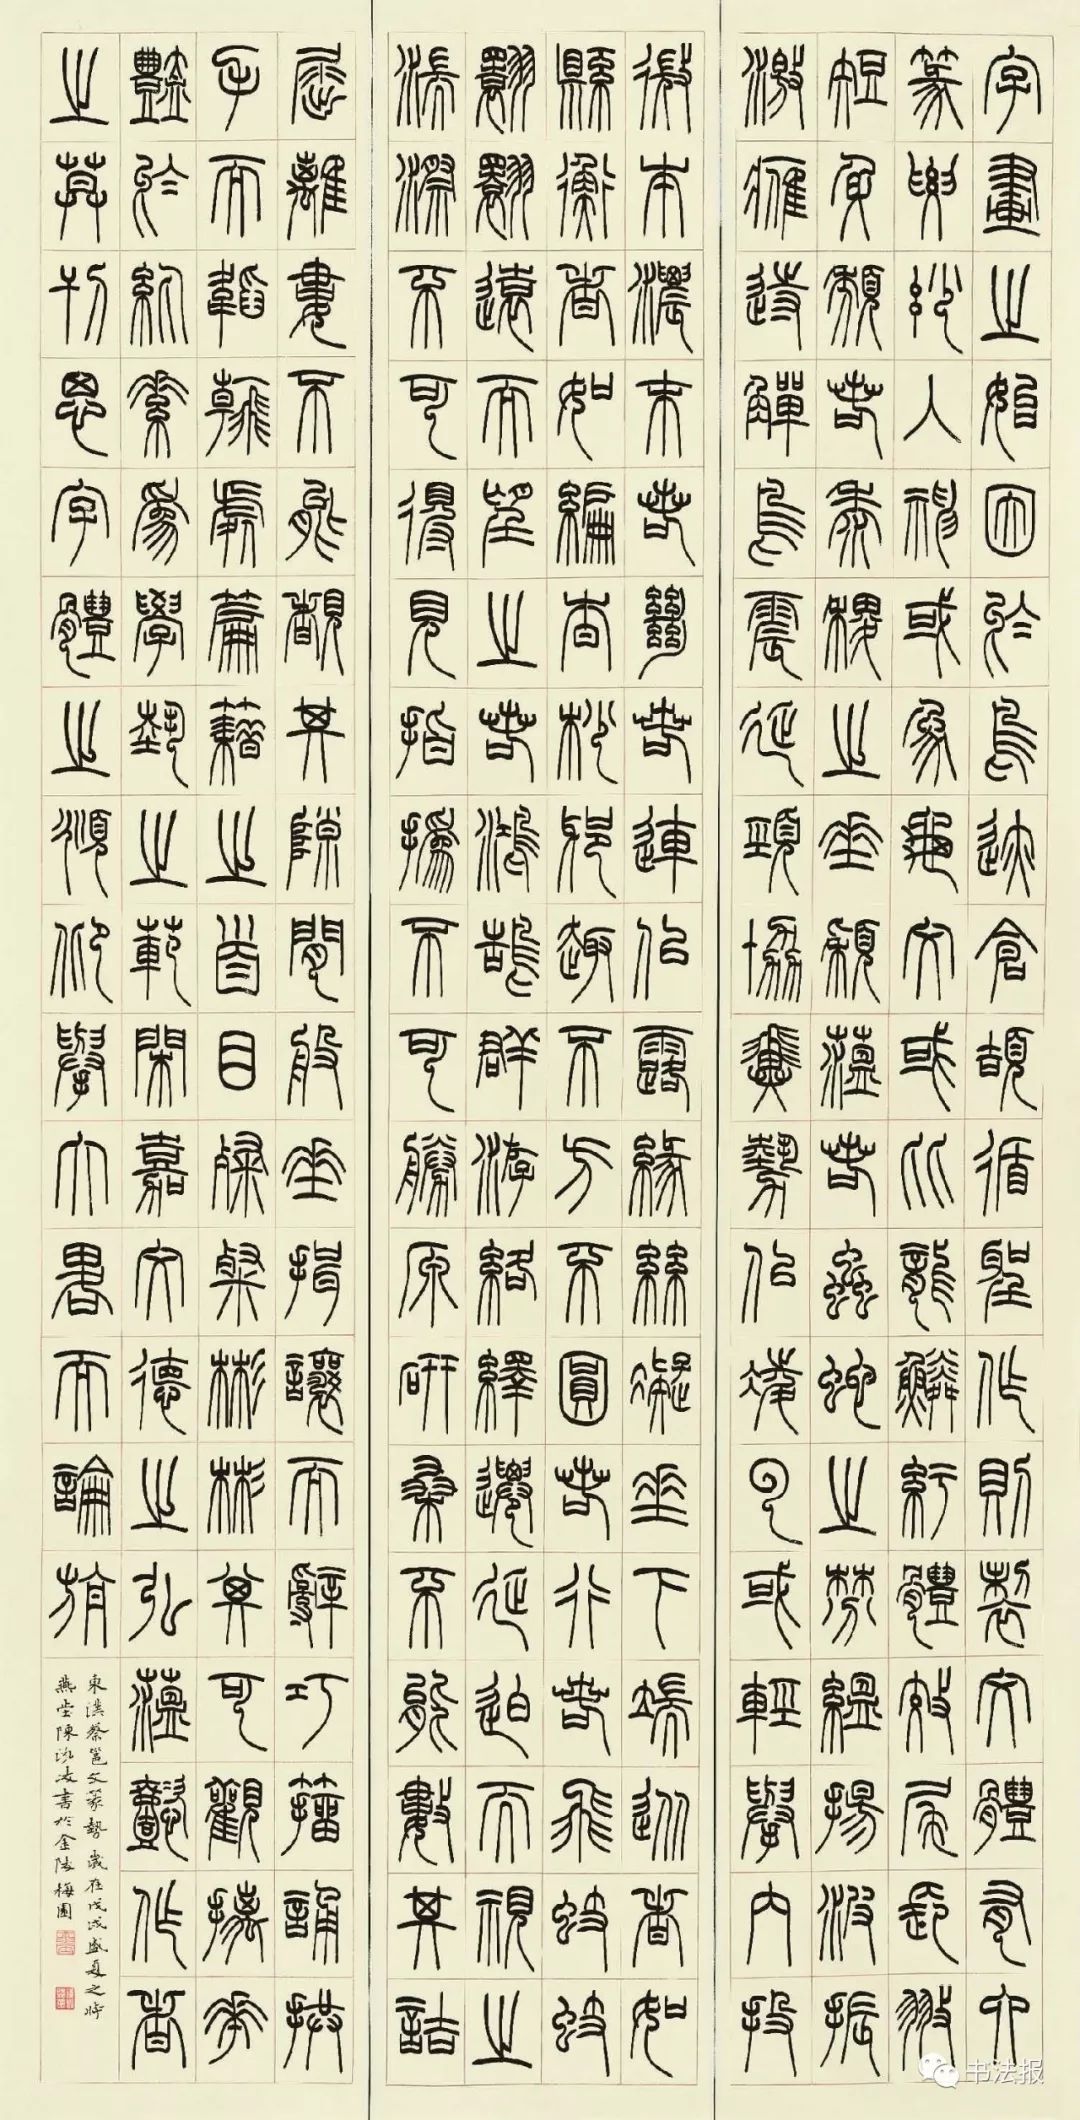 字畫之始因於鳥跡倉頡循聖作則製文體有六
篆要妙入神或象龜文或比龍鱗紆體放尾長翅
短身頹若黍稷之垂穎蘊若蟲蛇之棼縕揚波振
激鷹跱鳥震延頸協翼勢似凌雲或輕舉內投
微本濃末若絕若連似露緣絲凝垂下端從者如
縣衡者如編杳杪邪趣不方不圓若行若飛蚑蚑
翾翾遠而望之若鴻鵠群游絡繹遷延迫而視之
湍漈不可得見指撝不可勝原研桑不能數其詰
屈離婁不能覩其隙間般垂揖讓而辭巧籀誦拱
手而韜翰處篇籍之首目粲粲彬彬其可觀摛華
豔於紈素為學藝之範閑嘉文德之弘蘊懿作者
之莫刊思字體之頫仰舉大略而論旃
東漢蔡邕文篆勢歲在戊戌盛夏之時
燕堂陳凌書於金陵梅園
书法报